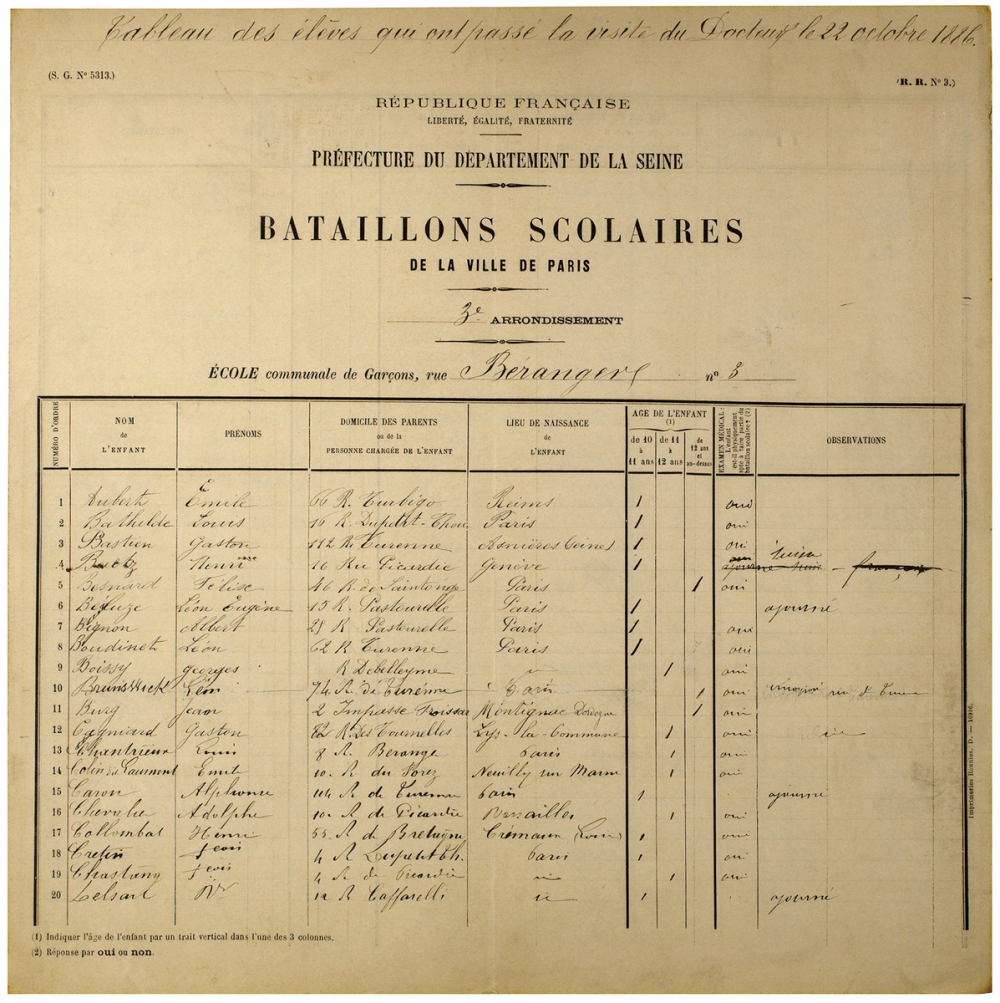 Tableau des élèves qui ont passé la visite du Docteur le 22 octobre 1886.
(S. G. Nº 5313.)
(R. R. Nº 3.)
RÉPUBLIQUE FRANÇAISE
LIBERTÉ, ÉGALITÉ, FRATERNITÉ
PRÉFECTURE DU DÉPARTEMENT DE LA SEINE
BATAILLONS SCOLAIRES
DE LA VILLE DE PARIS
3e ARRONDISSEMENT
ÉCOLE communale de Garçons, rue Béranger nº 3
NUMÉRO D'ORDRE
NOM de L'ENFANT
PRÉNOMS
DOMICILE DES PARENTS ou de la PERSONNE CHARGÉE DE L'ENFANT
LIEU DE NAISSANCE de L'ENFANT
AGE DE L'ENFANT (1)
de 10 à 11 ans
de 11 à 12 ans
de 12 ans et au-dessus
EXAMEN MÉDICAL: L'enfant est-il physiquement apte à faire partie du bataillon scolaire? (2)
OBSERVATIONS
1 Aubert Emile 66 R. Turbigo Reims 1 oui
2 Bathilde Louis 16 R. Dupetit-Thou Paris 1 oui
3 Bastien Gaston 112 R. Turenne Asnières Seine 1 oui
4 Henri 16 Rue Picardie Genève 1
5 Besnard Félix 46 R. de Saintonge Paris 1 oui
6 Léon Eugène 15 R. Pastourelle Paris 1 ajourné
7 Bignon Albert 25 R Pastourelle Paris 1 oui
8 Boudinet Léon 62 R Turenne Paris 1 oui
9 Boissy Georges R Debelleyme 1 oui
10 Brunswick Léon 74 R. de Turenne Paris 1 oui
11 Burg Jean 2 Impasse Montignac Dordogne 1 oui
12 Cagniard Gaston R. des Tournelles Lys la-Commune 1 oui
13 Chantrieux Louis 8 R. Béranger Paris 1 oui
14 Colin Emile 10 R du Forez Neuilly sur Marne 1 oui
15 Caron Alphonse R de Turenne Paris 1 ajourné
16 Chevalier Adolphe 10 R de Picardie Versailles 1 oui
17 Collombat Henri 55 R de Bretagne Cremeaux (Loire) 1 oui
18 Cretin 4 R Dupetit Th. Paris 1 oui
19 Chastang 4 R de Picardie 1 oui
20 Delsart 12 R Caffarelli 1 ajourné
(1) Indiquer l'âge de l'enfant par un trait vertical dans l'une des 3 colonnes.
(2) Réponse par oui ou non.